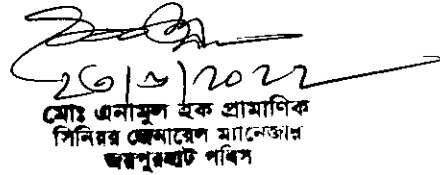 মোঃ এনামুল হক প্রামাণিক
সিনিয়র জেনারেল ম্যানেজার
জয়পুরহাট পবিস